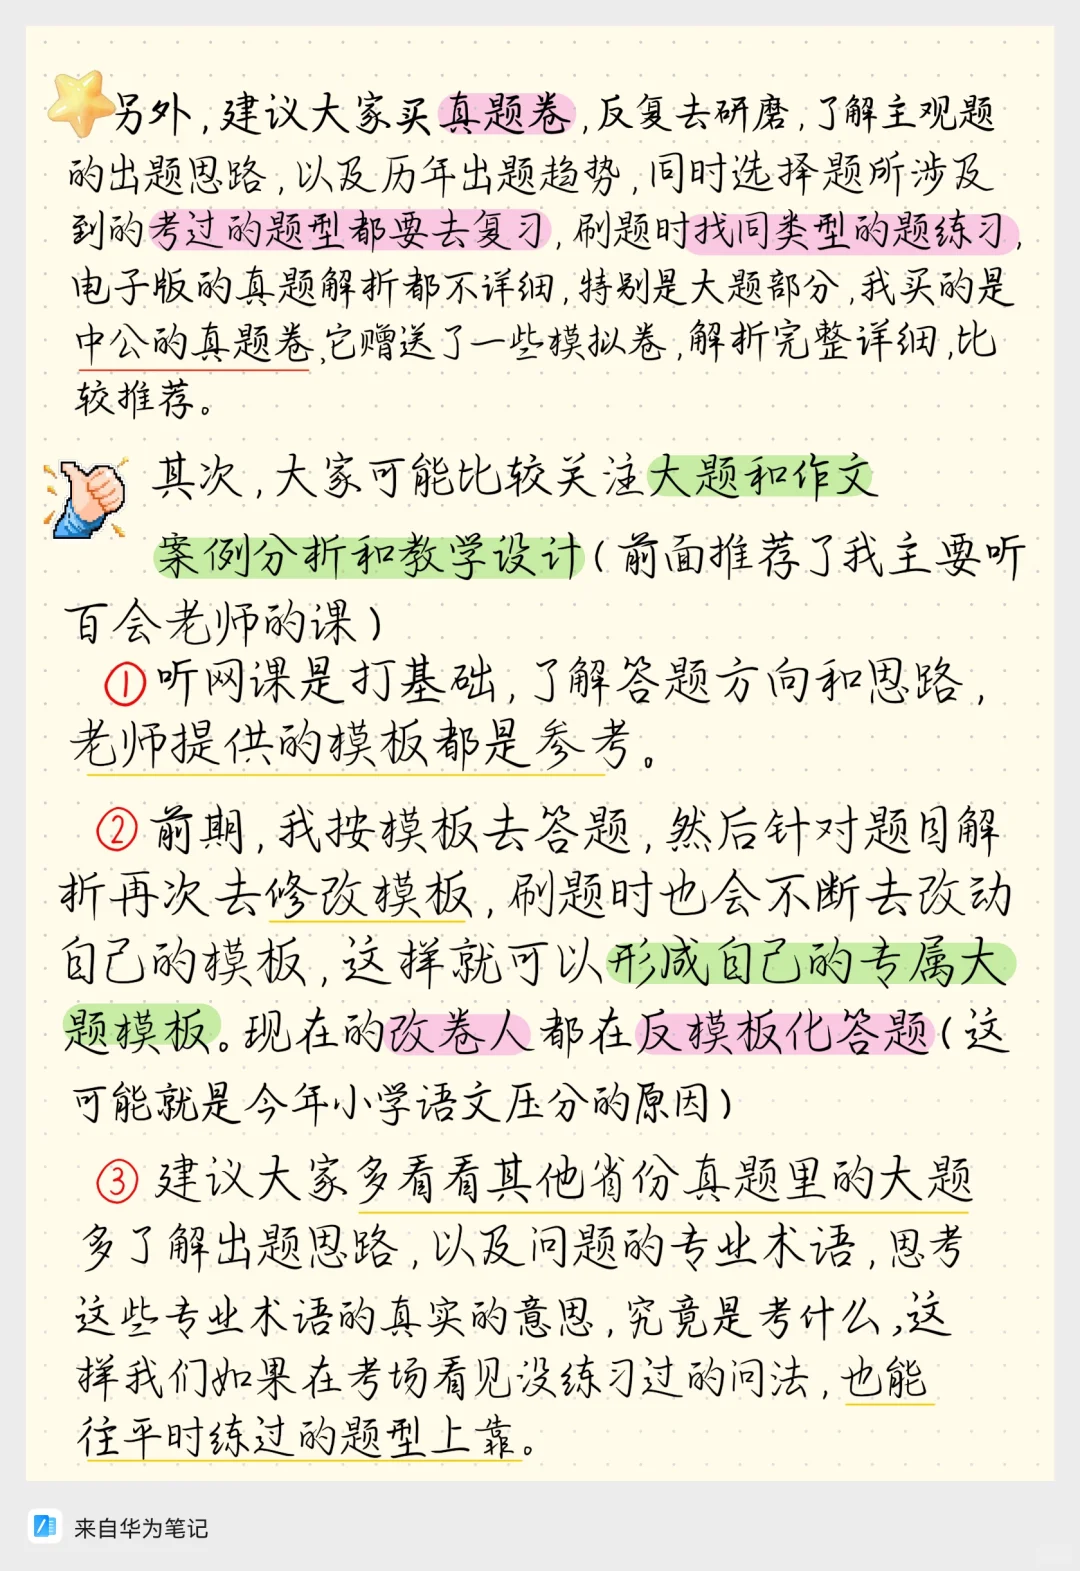 另外,建议大家买真题卷,反复去研磨,了解主观题
的出题思路,以及历年出题趋势,同时选择题所涉及
到的考过的题型都要去复习,刷题时找同类型的题练习,
电子版的真题解析都不详细,特别是大题部分,我买的是
中公的真题卷,它赠送了一些模拟卷,解析完整详细,比
较推荐。
其次,大家可能比较关注大题和作文
案例分析和教学设计(前面推荐了我主要听
百会老师的课)
①听网课是打基础,了解答题方向和思路,
老师提供的模板都是参考。
②前期,我按模板去答题,然后针对题目解
析再次去修改模板,刷题时也会不断去改动
自己的模板,这样就可以形成自己的专属大
题模板。现在的改卷人都在反模板化答题(这
可能就是今年小学语文压分的原因)
③建议大家多看看其他省份真题里的大题
多了解出题思路,以及问题的专业术语,思考
这些专业术语的真实的意思,究竟是考什么,这
样我们如果在考场看见没练习过的问法,也能
往平时练过的题型上靠。
来自华为笔记